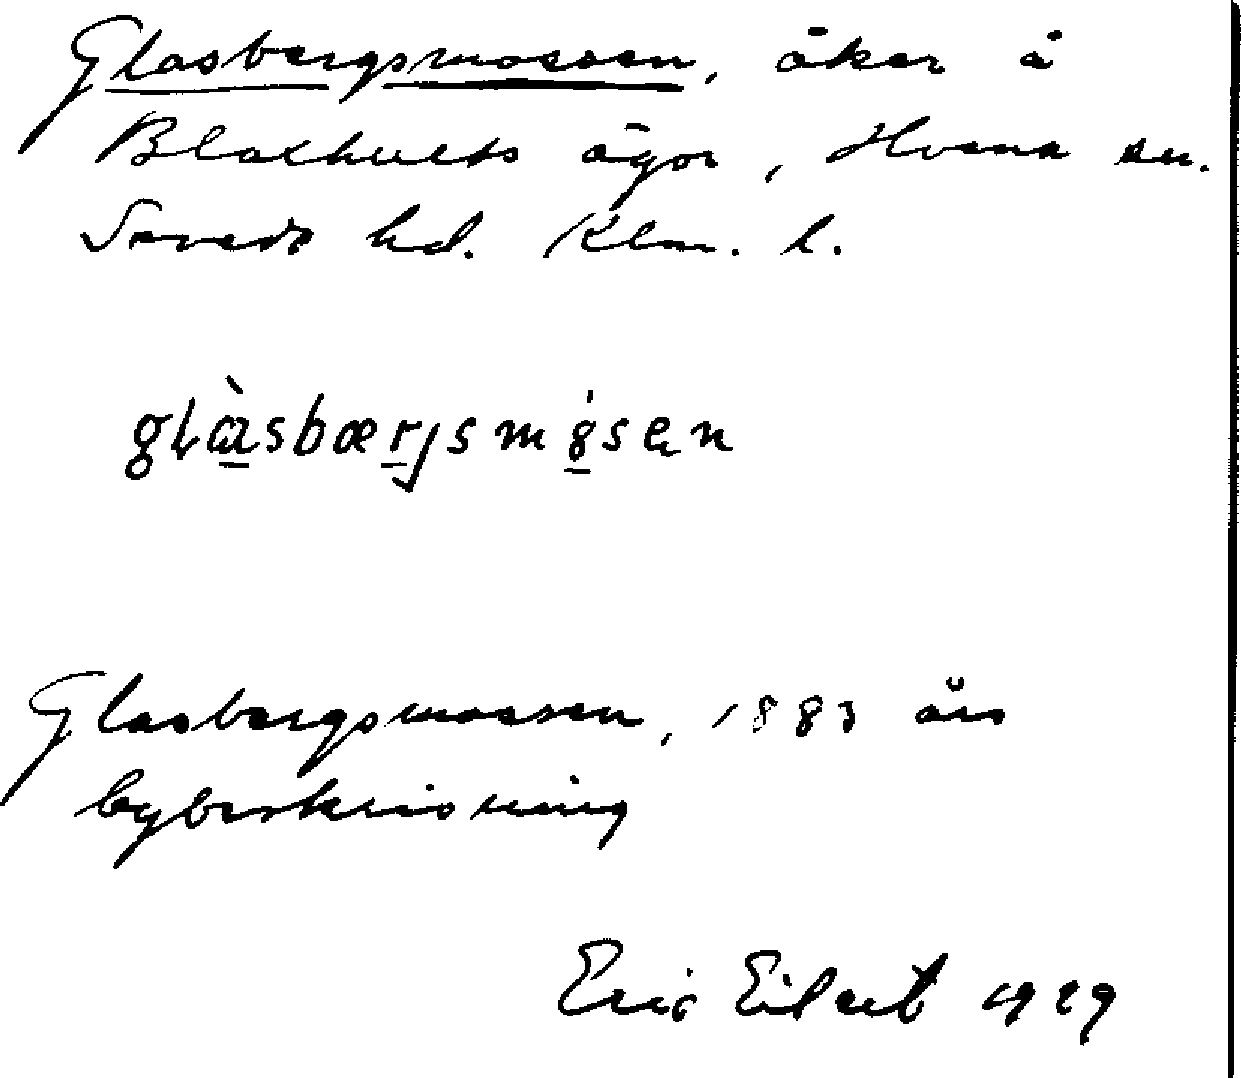 Glasbergsmossen, åker å
Blackhults ägor, Hvena sn.
Sevede hd. Klm. l.
glàsbærjsmósen
Glasbergsmossen, 1883 års
bybeskrivning
Eric Eilert 1929